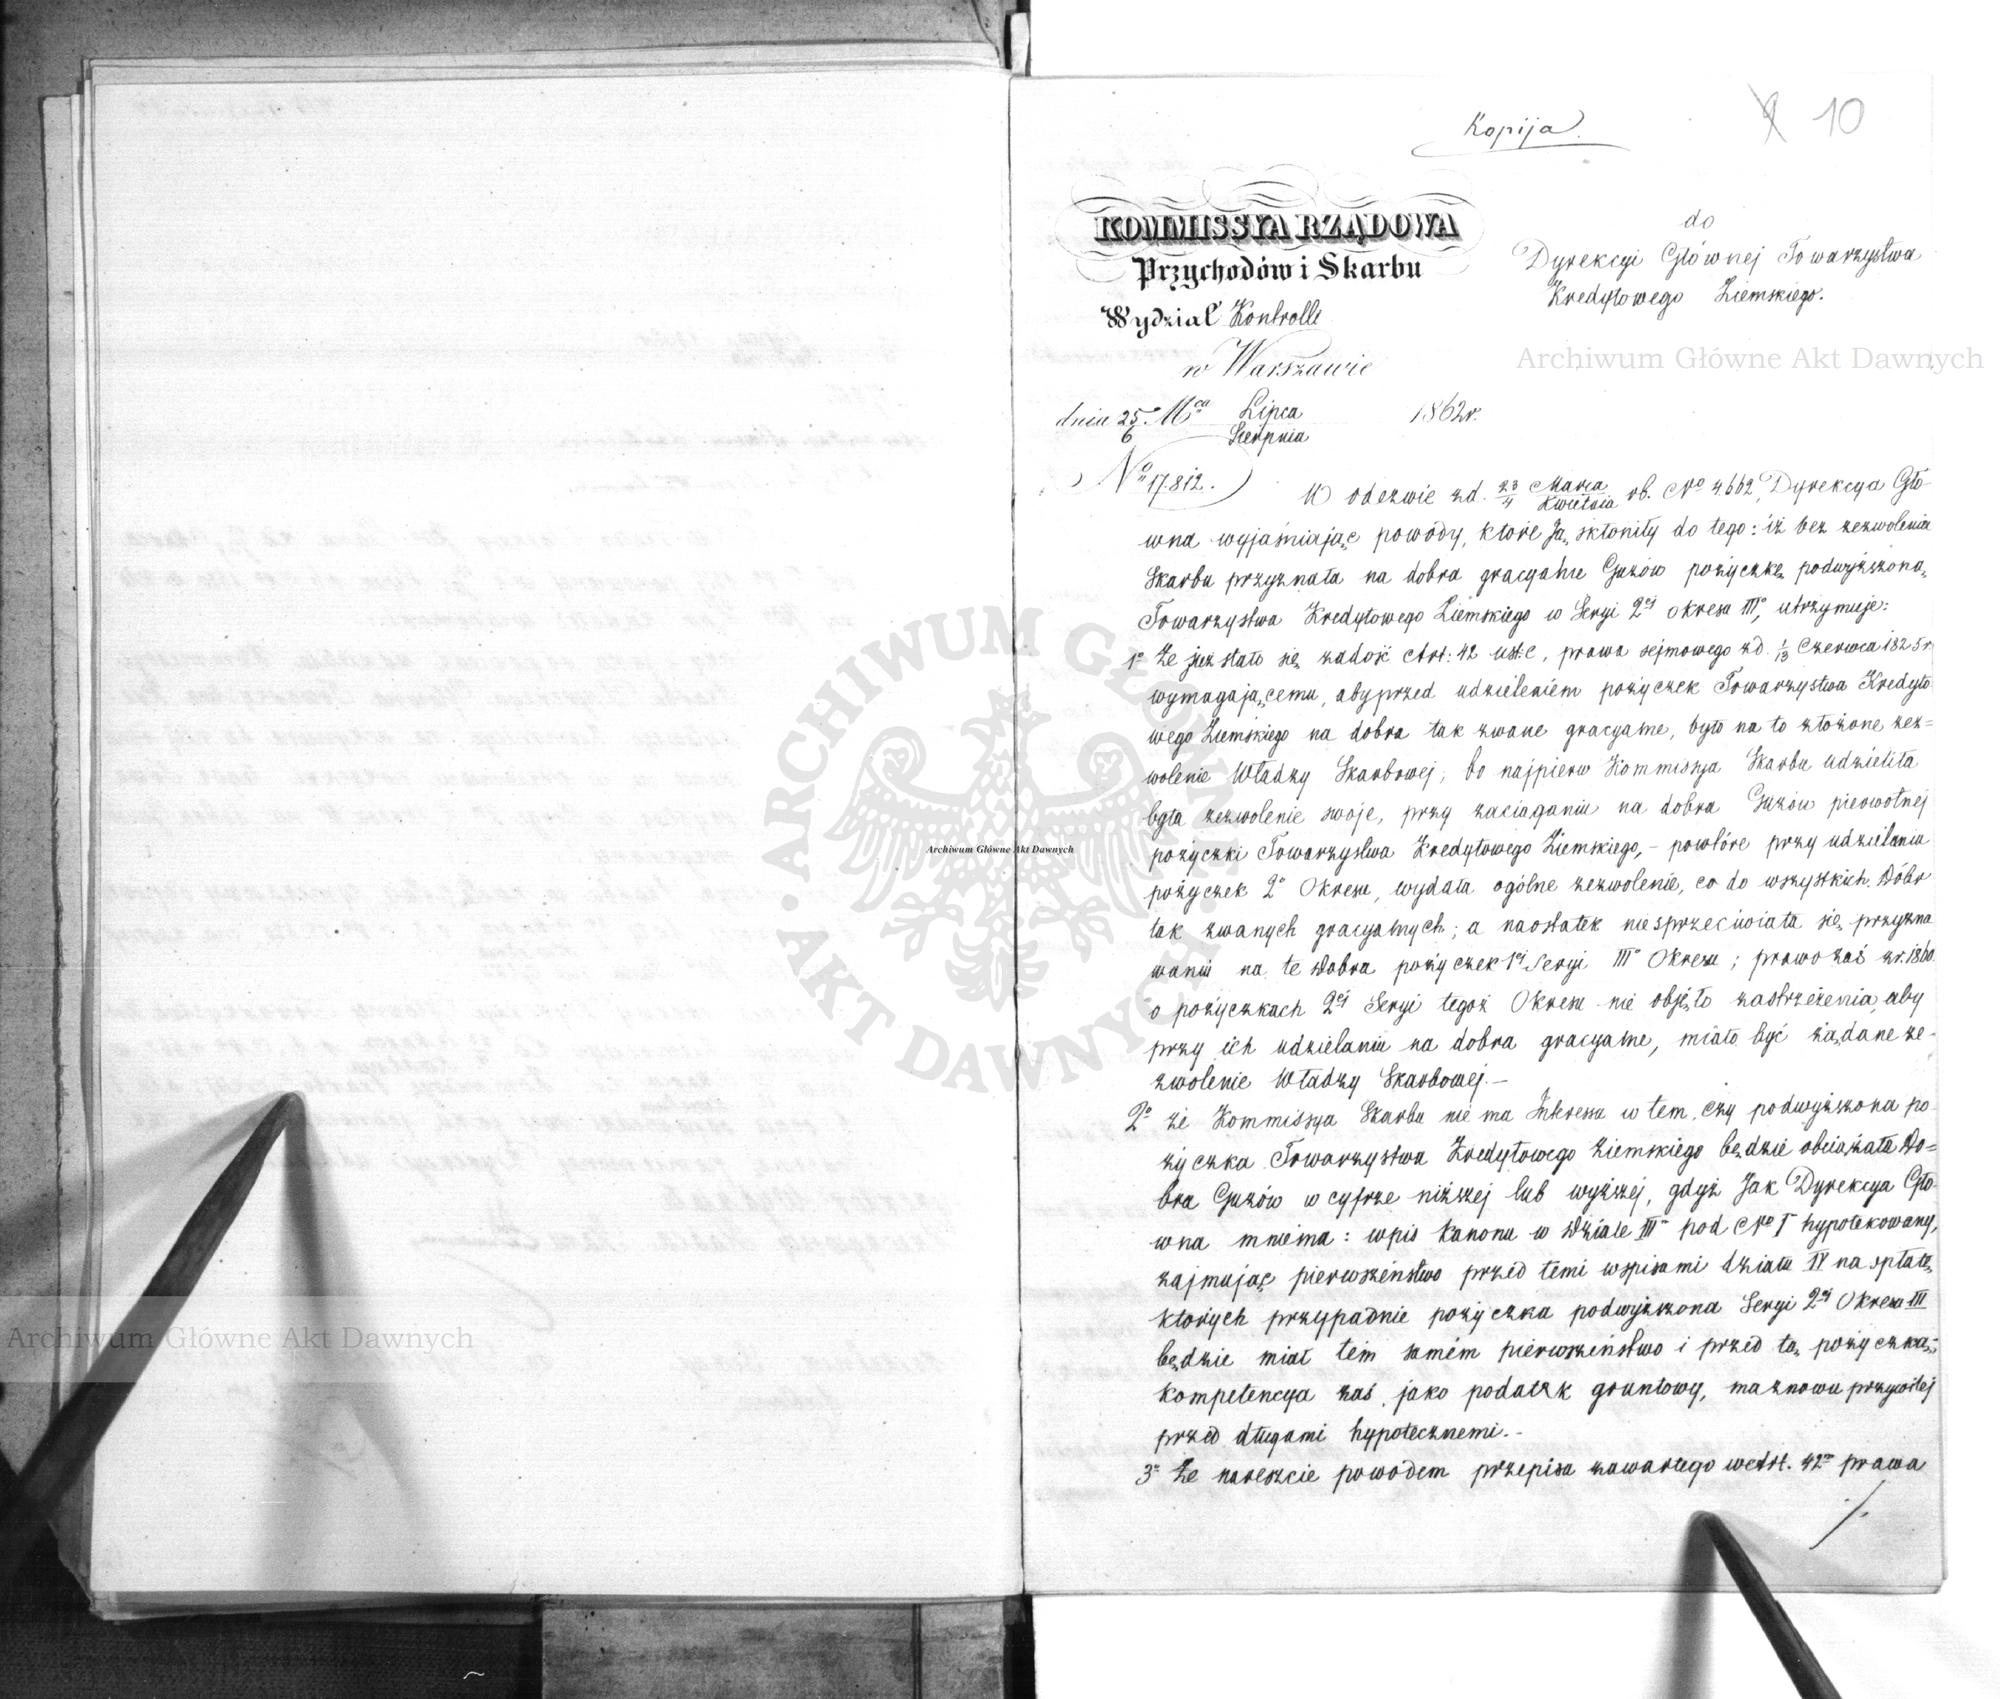 9 10
Kopija
KOMMISSYA RZĄDOWA
Przychodów i Skarbu
Wydział Kontrolli
w Warszawie
dnia 25/6 Mca Lipca/Sierpnia 1862 r.
No 17.812.
do
Dyrekcyi Głównej Towarzystwa
Kredytowego Ziemskiego.
W odezwie z d. 23/4 Marca/Kwietnia rb. No 4.662, Dyrekcya Głó-
wna wyjaśniając powody, które Ją skłoniły do tego: iż bez zezwolenia
Skarbu przyznała na dobra gracyalne Guzów pożyczkę podwyższoną
Towarzystwa Kredytowego Ziemskiego w Seryi 2ej okresu IIIo, utrzymuje:
1o Że już stało się zadość Art: 42 ust: c, prawa sejmowego z d. 1/13 Czerwca 1825 r.
wymagającemu, aby przed udzieleniem pożyczek Towarzystwa Kredyto-
wego Ziemskiego na dobra tak zwane gracyalne, było na to złożone zez=
wolenie Władzy Skarbowej; bo najpierw Kommissya Skarbu udzieliła
była zezwolenie swoje, przy zaciąganiu na dobra Guzów pierwotnej
pożyczki Towarzystwa Kredytowego Ziemskiego, – powtóre przy udzielaniu
pożyczek 2o Okresu, wydała ogólne zezwolenie, co do wszystkich Dóbr
tak zwanych gracyalnych; a naostatek niesprzeciwiała się przyzna
waniu na te Dobra pożyczek 1ej Seryi IIIo Okresu; prawo zaś z r. 1860
o pożyczkach 2ej Seryi tegoż Okresu nie objęło zastrzeżenia, aby
przy ich udzielaniu na dobra gracyalne, miało być żądane ze-
zwolenie Władzy Skarbowej. –
2o że Kommissya Skarbu nie ma Interessu w tem, czy podwyższona po-
życzka Towarzystwa Kredytowego Ziemskiego będzie obciążała Do=
bra Guzów w cyfrze niższej lub wyższej, gdyż Jak Dyrekcya Głó-
wna mniema: wpis kanonu w Dziale III pod No 1 hypotekowany,
zajmując pierwszeństwo przed temi wpisami działu IV na spłatę
których przypadnie pożyczka podwyższona Seryi 2ej Okresu III
będzie miał tém samém pierwszeństwo i przed tą pożyczką;
kompetencya zaś, jako podatek gruntowy, ma znowu przywilej
przed długami hypotecznemi. –
3o Że nareszcie powodem przepisu zawartego w Art. 42 prawa
./.
Archiwum Główne Akt Dawnych
Archiwum Główne Akt Dawnych
Archiwum Główne Akt Dawnych
ARCHIWUM GŁÓWNE AKT DAWNYCH